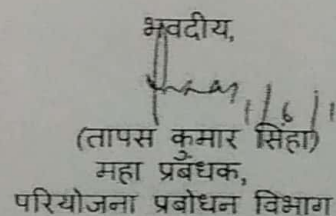 भवदीय,
1/6/1
(तापस कुमार सिंहा)
महा प्रबंधक,
परियोजना प्रबोधन विभाग